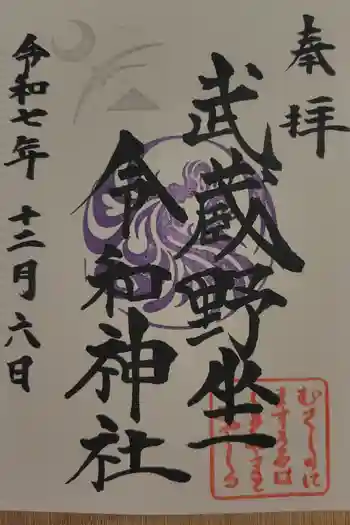 奉拝
武蔵野坐
令和神社
令和七年 十二月 六日
むさしのに